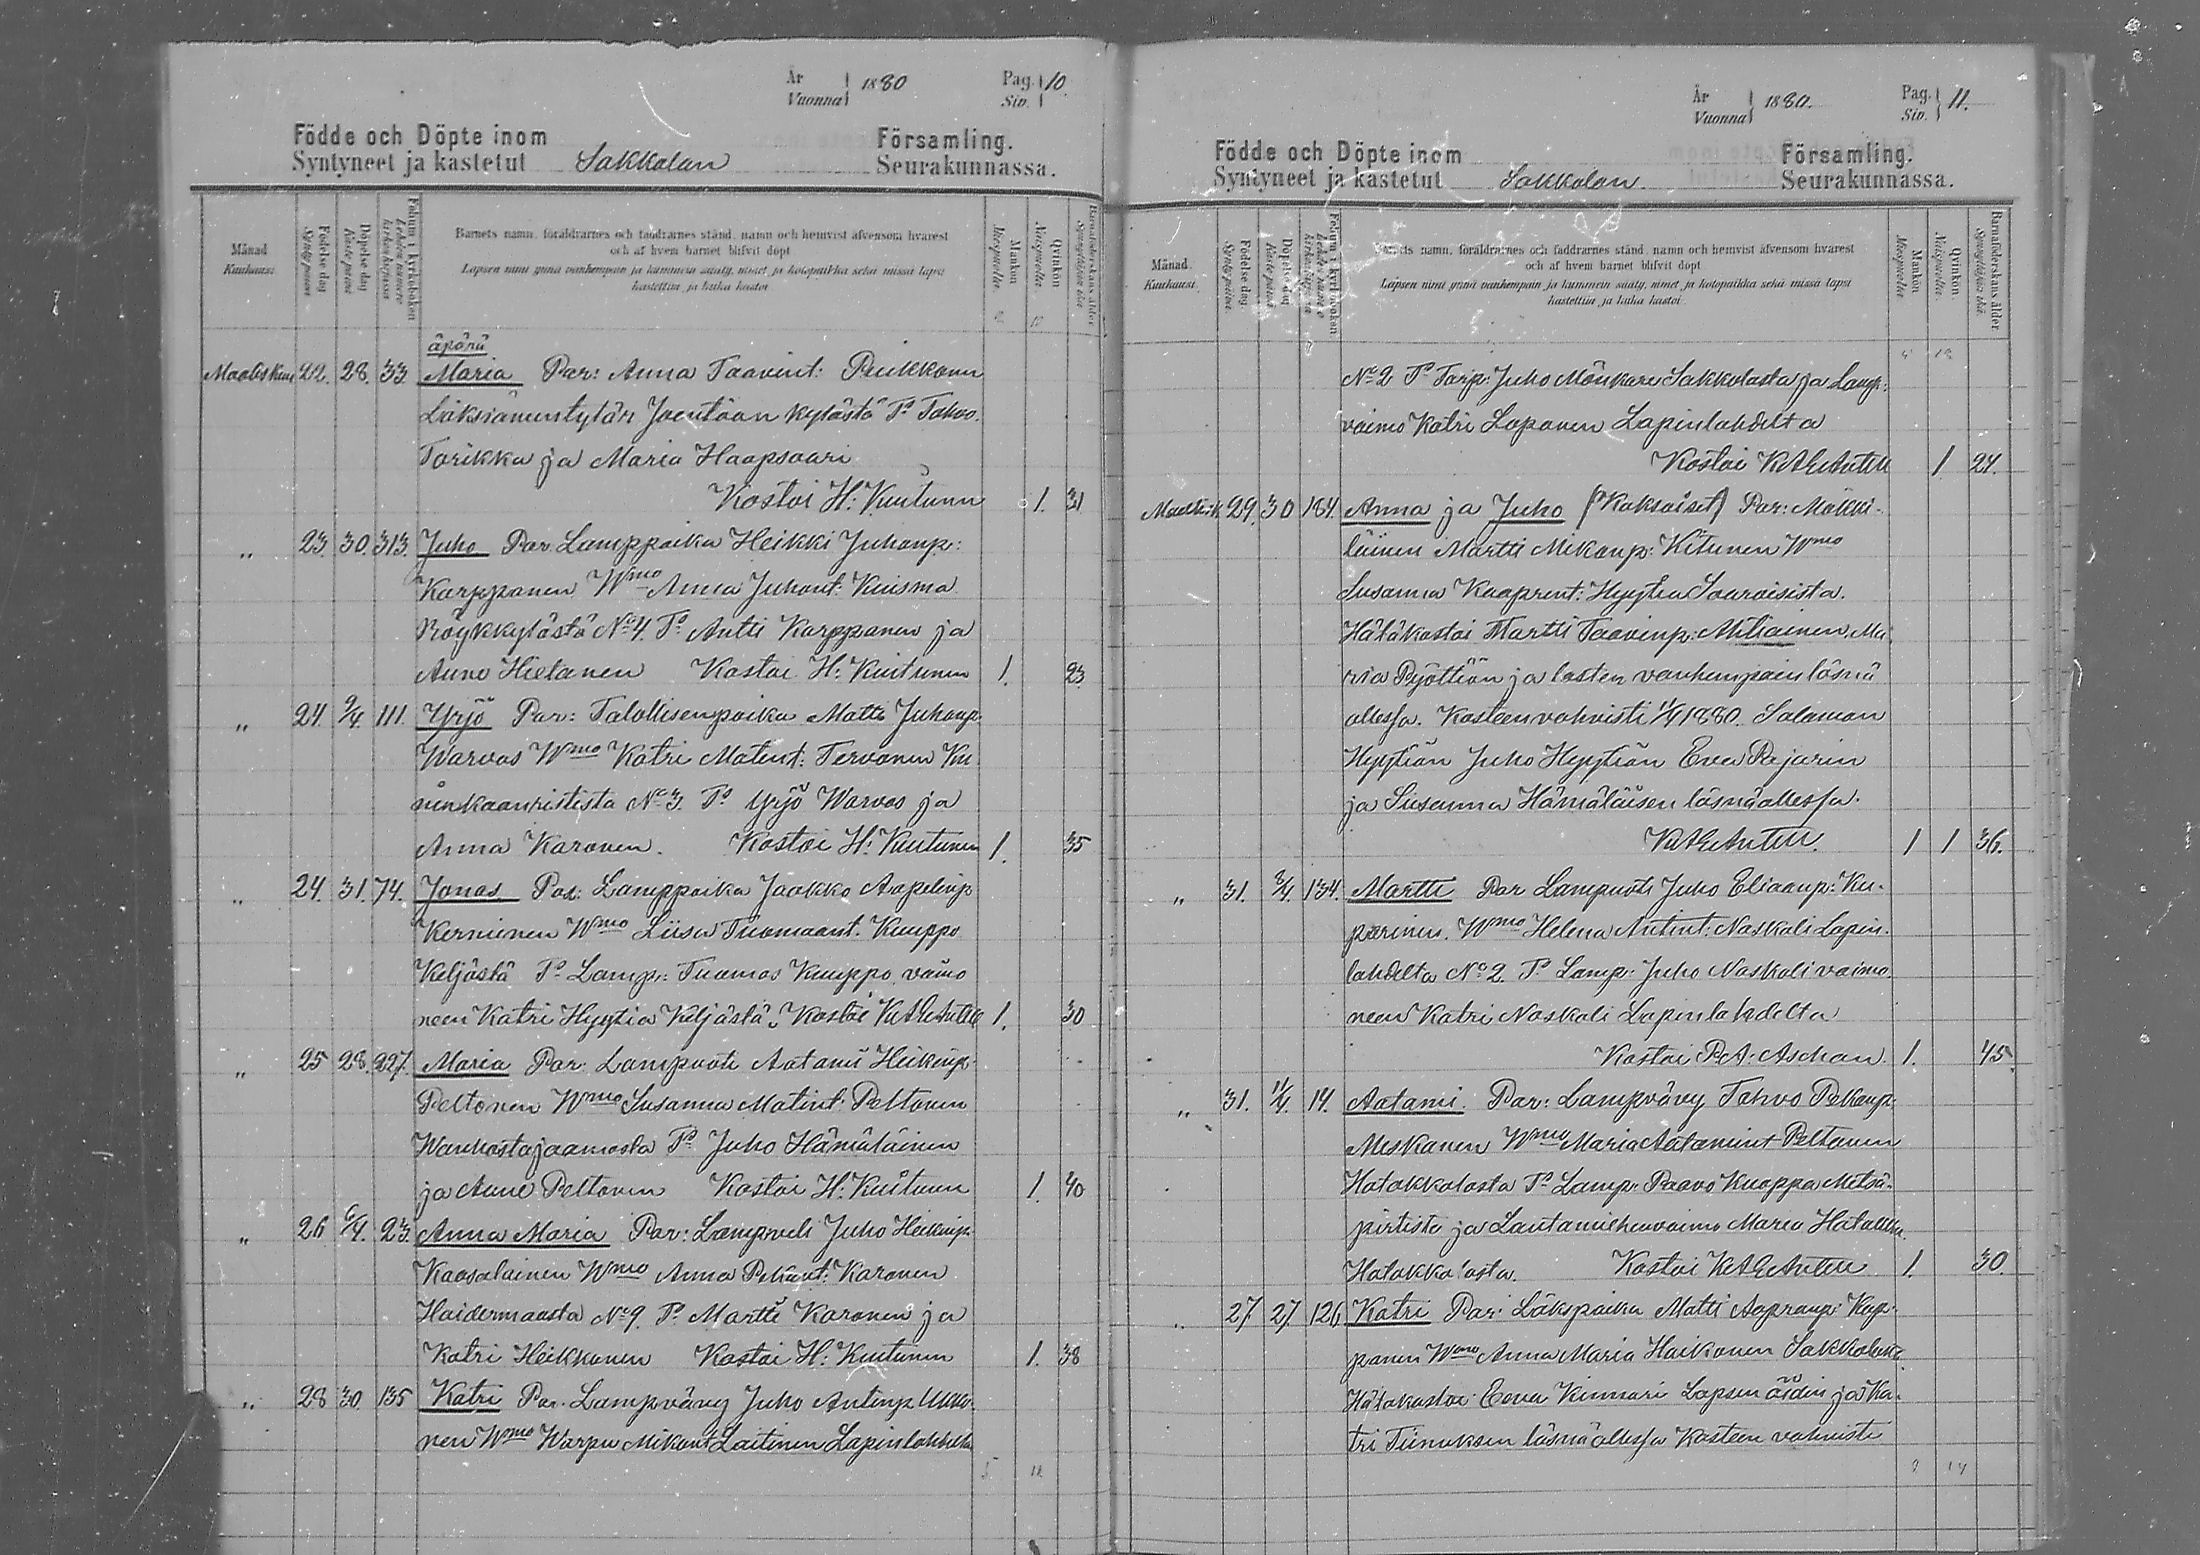 År 1880 Pag. 10.
Vuonna Siv.
Födde och Döpte inom Församling.
Syntyneet ja kastetut Sakkolan Seurakunnassa.
Månad Kuukausi
Födelse dag Syntypäivä
Döpelse dag Kastepäivä
Folium i kyrkoboken
Barnets namn, föräldrarnes och faddrarnes stånd, namn och hemvist äfvensom hvarest
och af hvem barnet blifvit döpt
Lapsen nimi ynnä vanhempain ja kummein sääty, nimet ja kotopaikka sekä missä lapsi
kastettiin ja kuka kastoi
Mankön Miespuolia
Qvinkön Naispuolia
Barnaföderskans ålder
äpärä
Maaliskuu 22. 28. 33. Maria Par: Anna Taavint: Peukkonen
Läksiämentytär Joentaan kylästä Ts Tahvo
Torikka ja Maria Haapsaari
Kastoi H: Kuitunen 1. 31
„ 23. 30. 313. Juho Par. Lamppaika Heikki Juhonp:
Karppanen Wmo Anna Juhont: Kuisma
Röykkylästä No 4. Ts Antti Karppanen ja
Anna Hietanen Kastoi H: Kuitunen 1. 23
„ 24. 9/4. 111. Yrjö Par: Talollisenpoika Matti Juhonp.
Warvas Wmo Katri Matint: Tervonen Ku
ninkaanristista No 3. Ts Yrjö Warvas ja
Anna Karonen. Kastoi H: Kuitunen 1. 35
„ 24. 31. 74. Jonas. Par: Lamppoika Jaakko Aapelinp
Kernienen Wmo Liisa Tuomaant. Kuuppo
Keljästä Ts Lamp: Tuomas Kuuppo vaimo
neen Katri Hyytiä Keljästä „ Kastoi 1. 30
„ 25 28. 227. Maria Par. Lampuoti Aatami Heikinp.
Peltonen Wmo Susanna Matint: Peltonen
Wanhastajaamasta Ts Juho Hämäläinen
ja Anne Peltonen Kastoi H: Kuitunen 1. 40
„ 26 6/4. 23. Anna Maria Par: Lampveli Juho Heikinp.
Kaasalainen Wmo Anna Pekant: Karonen
Haidermaasta No 9. Ts Martti Karonen ja
Katri Heikkonen Kastoi H: Kuitunen 1. 38
„ 28 30. 135 Katri Par. Lampvävy Juho Antinp. Ukko-
nen Wmo Warpu Mikont Laitinen Lapinlahdelta
5 12
År 1880. Pag. 11.
Vuonna Siv.
Födde och Döpte inom Församling.
Syntyneet ja kastetut Sakkolan Seurakunnassa.
Månad. Kuukausi
Födelse dag. Syntypäivä
Döpelse dag Kastepäivä
Folium i kyrkoboken
Barnets namn, föräldrarnes och faddrarnes stånd, namn och hemvist äfvensom hvarest
och af hvem barnet blifvit döpt
Lapsen nimi ynnä vanhempain ja kummein sääty, nimet ja kotopaikka sekä missä lapsi
kastettiin ja kuka kastoi
Mankön Miespuolia
Qvinkön Naispuolia
Barnaföderskans ålder
5 12
No 2 Ts Torp: Juho Mönkäre Sakkolasta ja Lamp:
vaimo Katri Loponen Lapinlahdelta
Kastoi 1 24.
Maalisk. 29. 30 184. Anna ja Juho (Kaksoiset) Par: Mäkki-
läinen Martti Mikonp: Kitunen Wmo
Susanna Kaaprent: Hyytiä Saaroisista.
Hätäkastoi Martti Taavinp: Ahtiainen, Ma
ria Pyöttiän ja lasten vanhempain läsnä
ollessa. Kasteen vahvisti 11/4 1880. Salamon
Hyytiän Juho Hyytiän Eva Pajarin
ja Susanna Hämäläisen läsnäollessa.
1 1 36.
„ 31. 3/4. 134. Martti Par Lampuoti Juho Eliaanp: Ku-
parinen. Wmo Helena Antint: Naskali Lapin-
lahdelta No 2. Ts Lamp: Juho Naskali vaimo
neen Katri Naskali Lapinlahdelta
Kastoi P. A. Aschan. 1. 45
„ 31. 11/4. 14. Aatami. Par: Lampvävy Tahvo Pekanp:
Meskanen Wmo Maria Aatamint Peltonen
Hatakkalasta Ts Lamp: Paavo Kuappa Metsä-
pirtistä ja Lautamiehenvaimo Maria
Hatakkalasta. Kastoi 1. 30.
„ 27. 27. 126. Katri Par: Läkspoika Matti Kap-
panen Wmo Anna Maria Haikonen Sakkolasta
Hätäkastoi Eeva Kinnari Lapsen äidin ja Ka-
tri Tiinuksen läsnäollessa Kasteen vahvisti
9 14